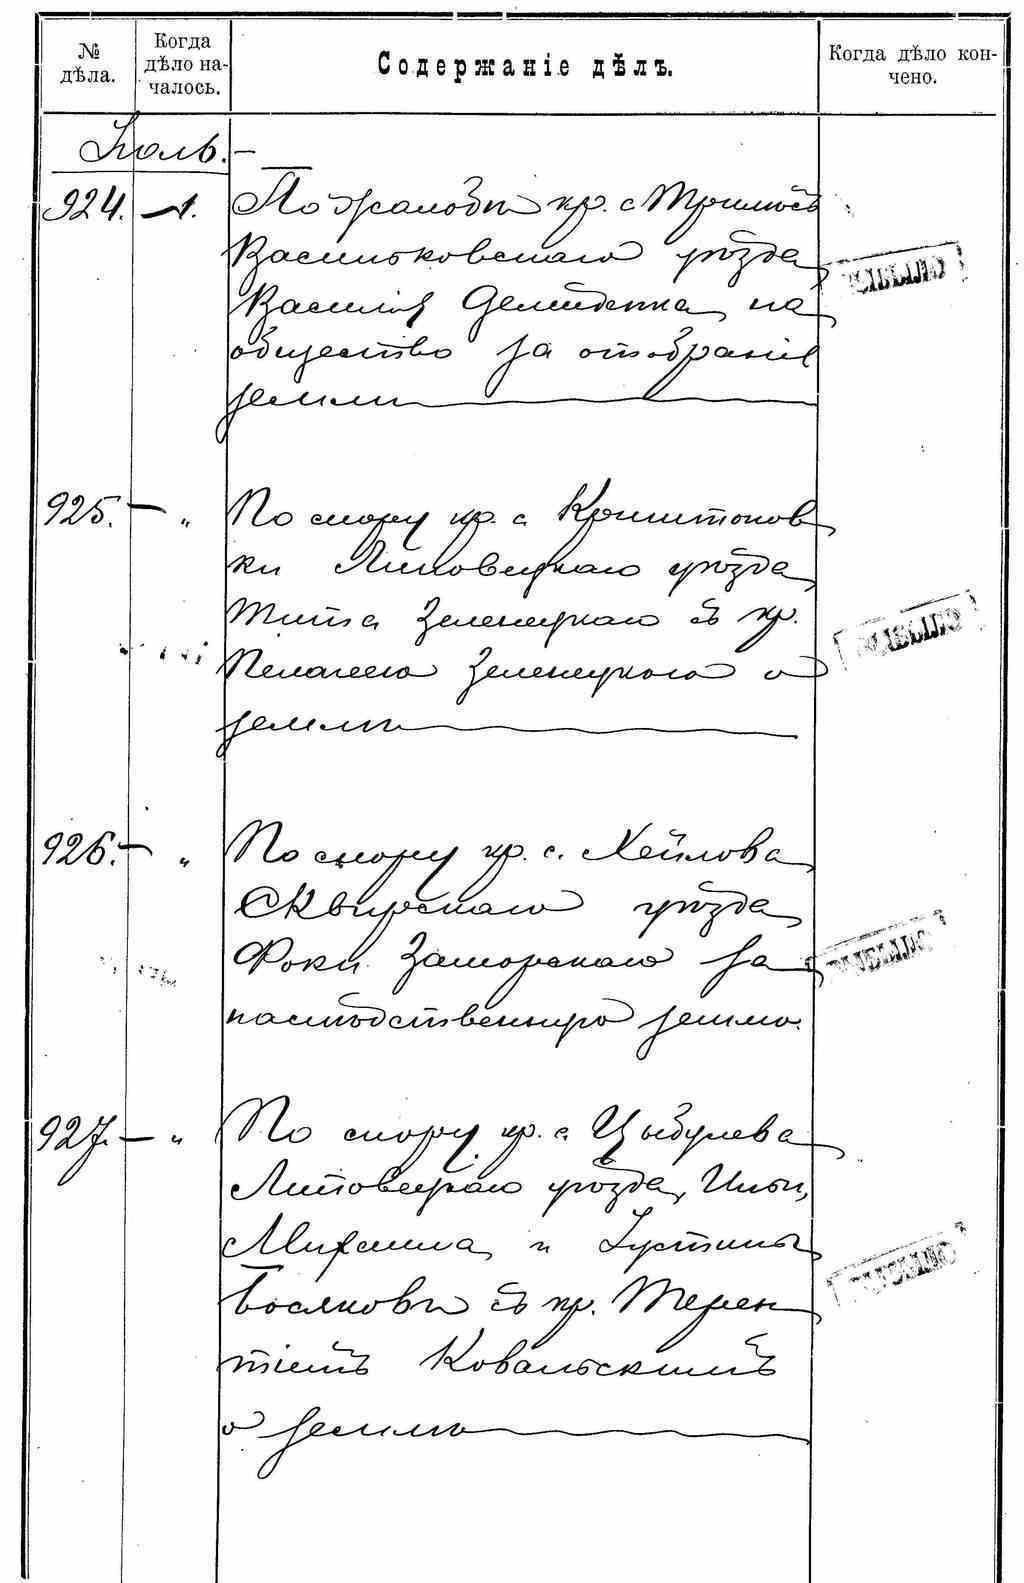 № дѣла.
Когда дѣло на-
чалось.
Содержаніе дѣлъ.
Когда дѣло кон-
чено.
Іюль.
924. 1. По жалобѣ кр. с Трилѣсъ
Васильковскаго уѣзда
Василія Демиденка на
общество за отобраніе
земли
925. — „ По спору кр. с Криштопов
ки Липовецкаго уѣзда
Тита Зеленецкаго съ кр.
Пелагеею Зеленецкою о
землѣ
926. — „ По спору кр. с. Хейлова
Сквирскаго уѣзда
Фоки Заморскаго за
наслѣдственную землю.
927. — „ По спору кр. с Цыбулева
Липовецкаго уѣзда, Ильи,
Михаила и Іустины
съ кр. Терен
тіемъ Ковальскимъ
о землѣ